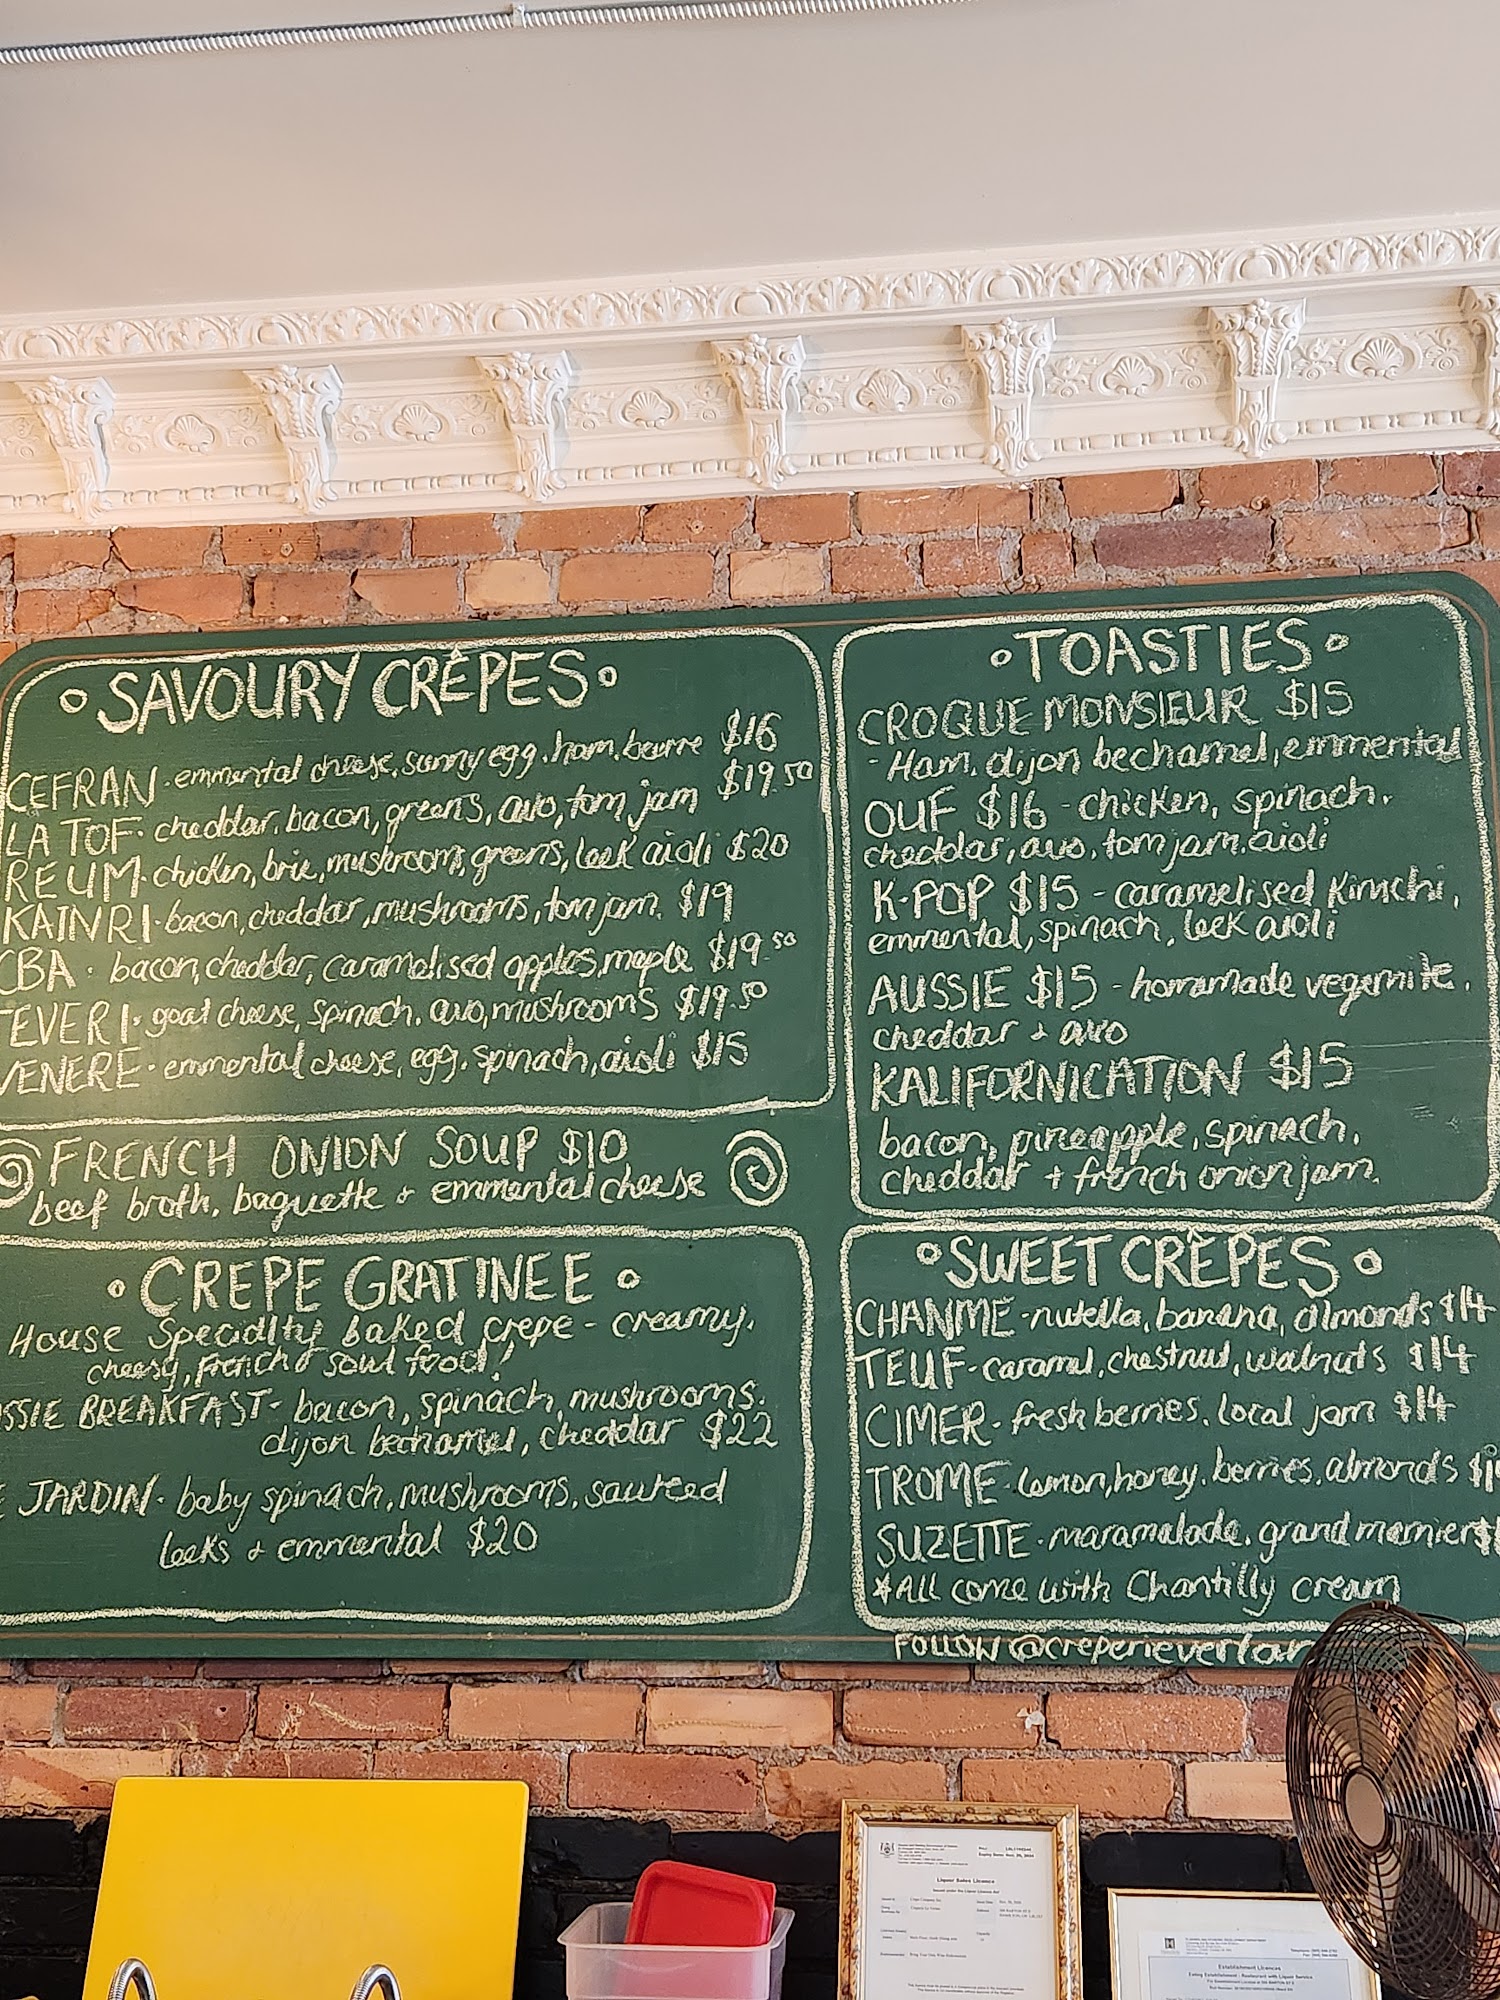 SAVOURY CRÊPES
CEFRAN · emmental cheese, sunny egg, ham, beurre $16
LA TOF · cheddar, bacon, greens, avo, tom jam $19.50
REUM · chicken, brie, mushrooms, greens, leek aioli $20
KAINRI · bacon, cheddar, mushrooms, tom jam. $19
CBA · bacon, cheddar, caramelised apples, maple $19.50
TEVERI · goat cheese, spinach, avo, mushrooms $19.50
VENERE · emmental cheese, egg, spinach, aioli $15
FRENCH ONION SOUP $10
beef broth, baguette & emmental cheese
CREPE GRATINEE
HOUSE Speciality baked crepe - creamy,
cheesy, french & soul food!
SSIE BREAKFAST - bacon, spinach, mushrooms,
dijon bechamel, cheddar $22
JARDIN · baby spinach, mushrooms, sauteed
leeks & emmental $20
TOASTIES
CROQUE MONSIEUR $15
- Ham, dijon bechamel, emmental
OUF $16 - chicken, spinach,
cheddar, avo, tom jam, aioli
K-POP $15 - caramelised kimchi,
emmental, spinach, leek aioli
AUSSIE $15 - homamade vegemite,
cheddar + avo
KALIFORNICATION $15
bacon, pineapple, spinach,
cheddar + french onion jam.
SWEET CRÊPES
CHANME - nutella, banana, almonds $14
TEUF - caramel, chestnut, walnuts $14
CIMER - fresh berries, local jam $14
TROME - lemon, honey, berries, almonds
SUZETTE · maramalade, grand marnier
*All come with Chantilly cream
FOLLOW @creperieverlan
Liquor Sales Licence
Establishment Licences